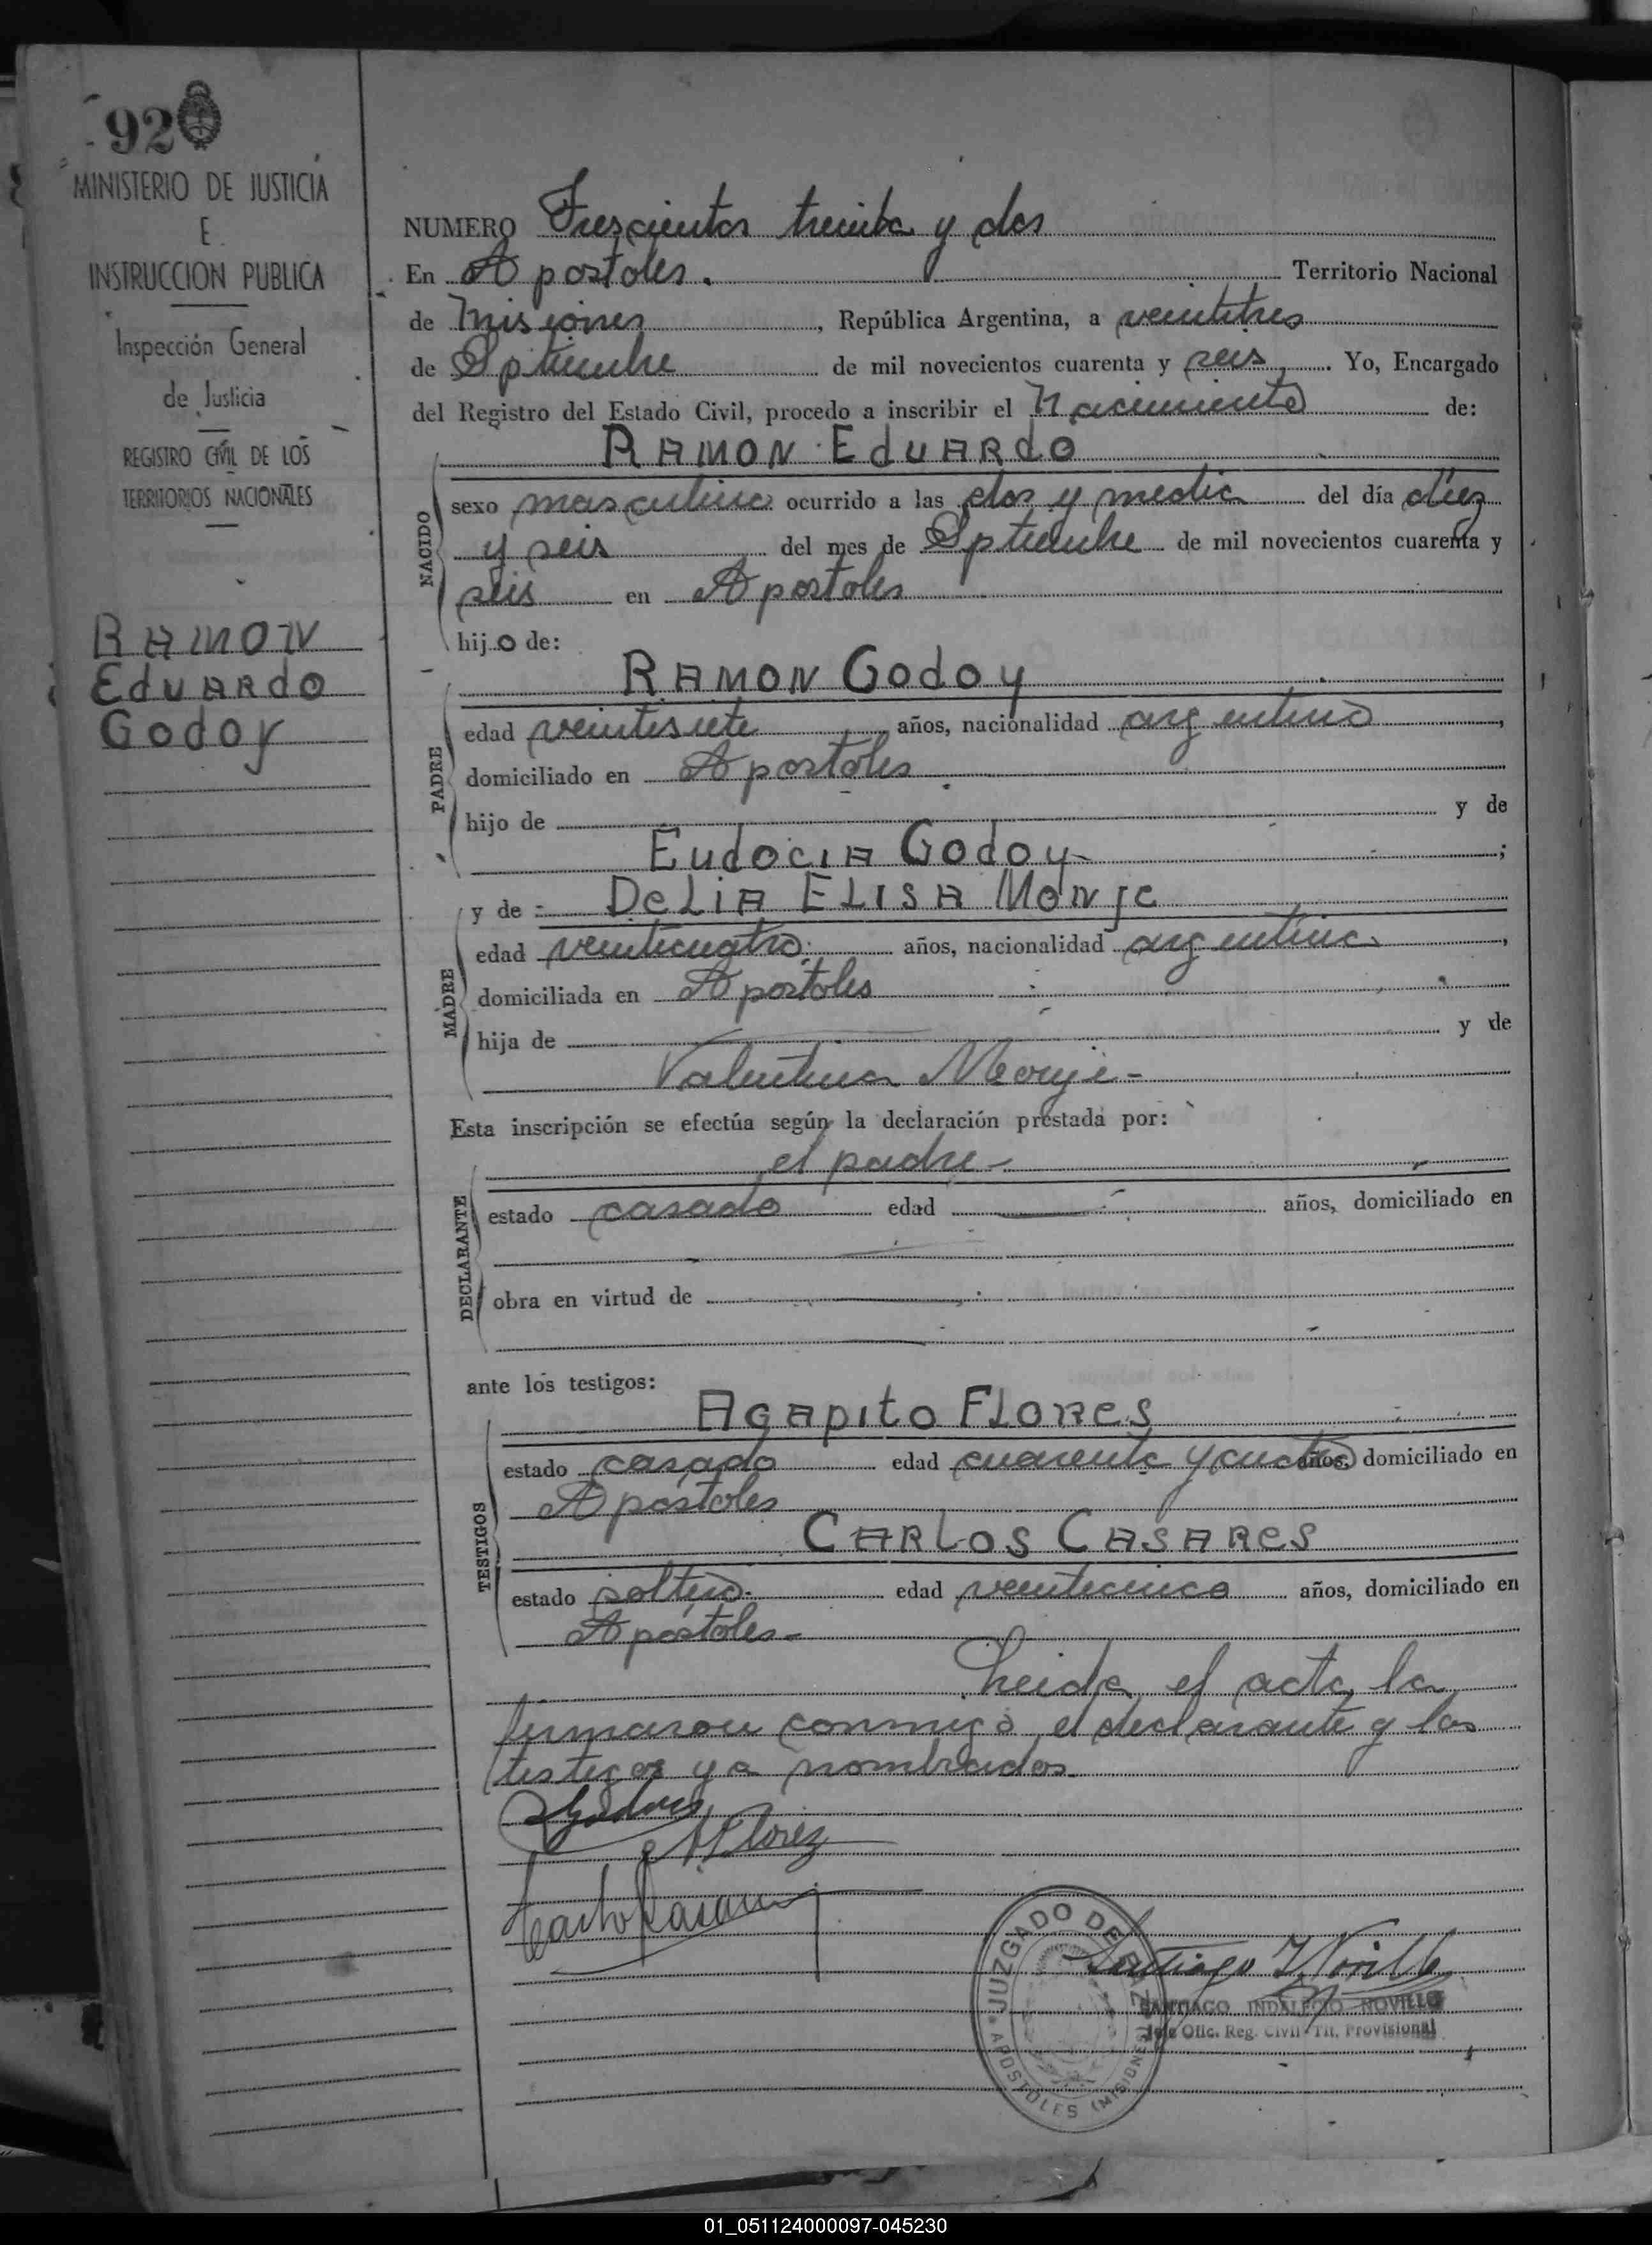 92
MINISTERIO DE JUSTICIA
E
INSTRUCCION PUBLICA
Inspección General
de Justicia
REGISTRO CIVIL DE LOS
TERRITORIOS NACIONALES
RAMON
EduARdo
Godoy
NUMERO Trescientos treinta y dos
En Apostoles. Territorio Nacional
de Misiones, República Argentina, a veintitres
de Sptiembre de mil novecientos cuarenta y seis. Yo, Encargado
del Registro del Estado Civil, procedo a inscribir el Nacimiento de:
RAMON EduARdo
NACIDO
sexo masculino ocurrido a las dos y media del día diez
y seis del mes de Sptiembre de mil novecientos cuarenta y
seis en Apostoles
hijo de:
RAMON Godoy
PADRE
edad veintisiete años, nacionalidad argentino,
domiciliado en Apostoles
hijo de y de
EudociA Godoy- ;
y de DeLiA ELISA MoNje
MADRE
edad veinticuatro años, nacionalidad argentina,
domiciliada en Apostoles
hija de y de
Valentina Monje-
Esta inscripción se efectúa según la declaración prestada por:
el padre-
DECLARANTE
estado casado edad años, domiciliado en
obra en virtud de
ante los testigos:
AGApito FLoRes
TESTIGOS
estado casado edad cuarenta y cuatro años, domiciliado en
Apóstoles
CARLos CASARes
estado soltero edad veinticinco años, domiciliado en
Apóstoles-
Leida el acta la
firmaron conmigo el declarante y los
testigos ya nombrados
A Florez
Santiago I Novillo
JUZGADO DE PAZ
APOSTOLES (MISIONES)
SANTIAGO INDALECIO NOVILLO
Jefe Ofic. Reg. Civil Tit. Provisional
01_051124000097-045230